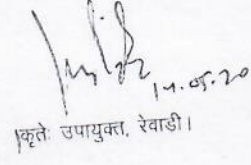 14.05.20
कृतेः उपायुक्त, रेवाड़ी।